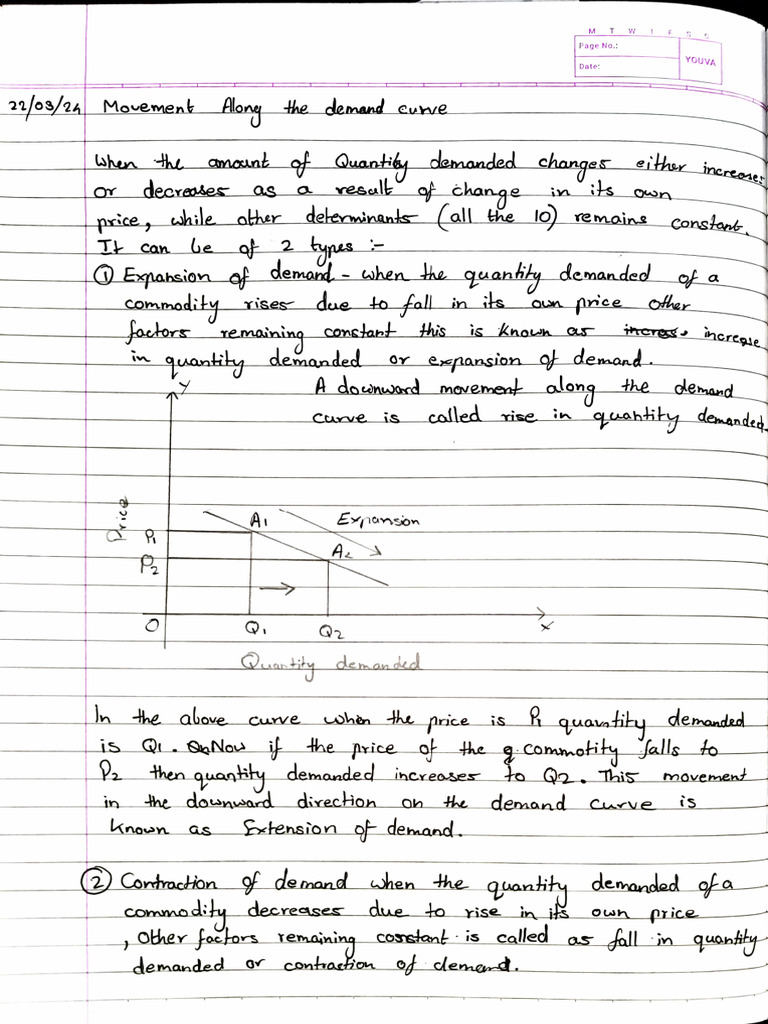 M T W T F S S
Page No.:
Date:
YOUVA
22/03/24 Movement Along the demand curve
When the amount of Quantity demanded changes either increases
or decreases as a result of change in its own
price, while other determinants (all the 10) remains constant.
It can be of 2 types :-
① Expansion of demand - when the quantity demanded of a
commodity rises due to fall in its own price other
factors remaining constant this is known as increase
in quantity demanded or expansion of demand.
A downward movement along the demand
curve is called rise in quantity demanded.
Y
Price
A1
Expansion
P1
A2
P2
O
Q1
Q2
X
Quantity demanded
In the above curve when the price is P1 quantity demanded
is Q1. Now if the price of the commotity falls to
P2 then quantity demanded increases to Q2. This movement
in the downward direction on the demand curve is
known as Extension of demand.
② Contraction of demand when the quantity demanded of a
commodity decreases due to rise in its own price
, Other factors remaining constant is called as fall in quantity
demanded or contraction of demand.